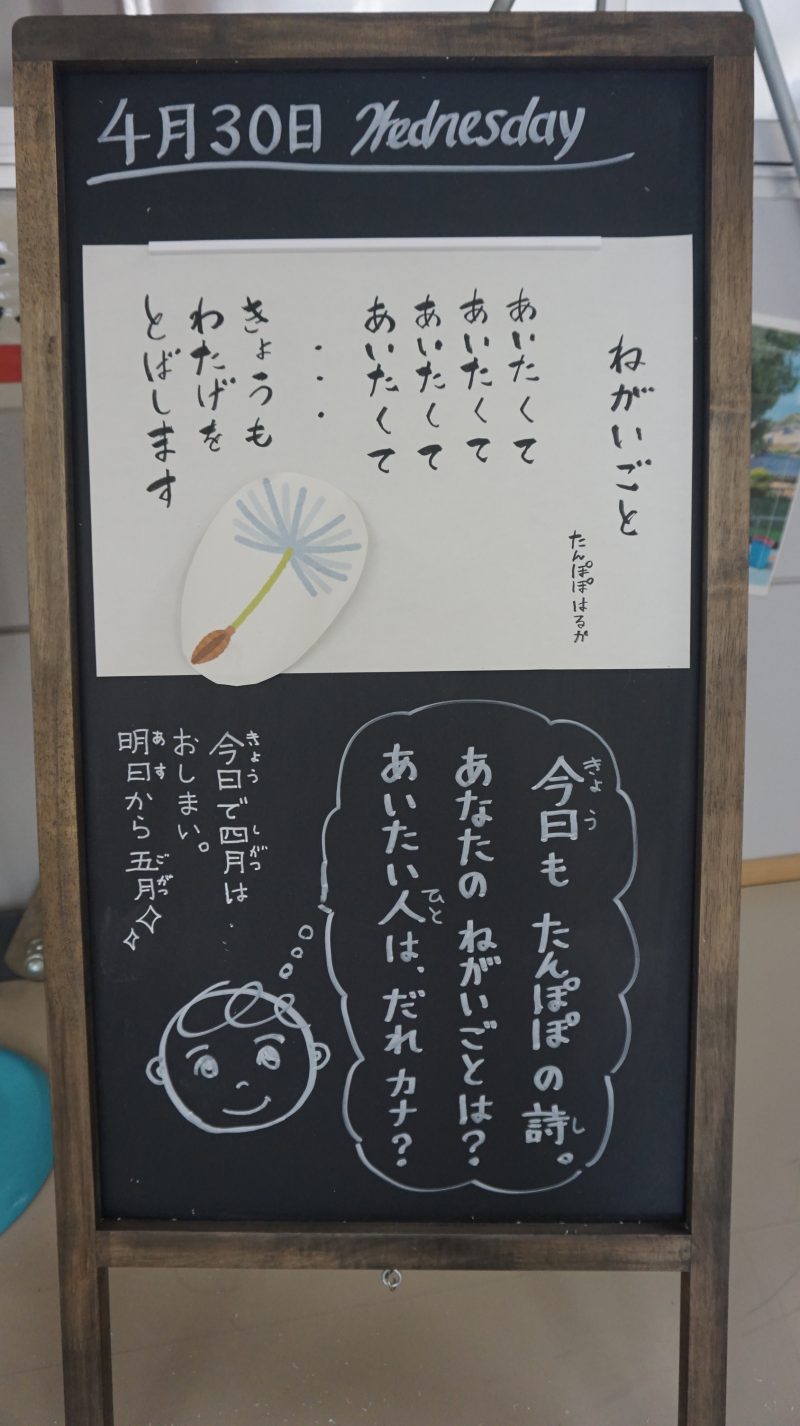 4月30日 Wednesday
ねがいごと
たんぽぽはるか
あいたくて
あいたくて
あいたくて
あいたくて
・・・
きょうも
わたげを
とばします
今日も たんぽぽの詩。
きょう
し
あなたの ねがいごとは?
あいたい人は、だれカナ?
ひと
今日で四月は
きょう
しがつ
おしまい。
明日から五月
あす
ごがつ